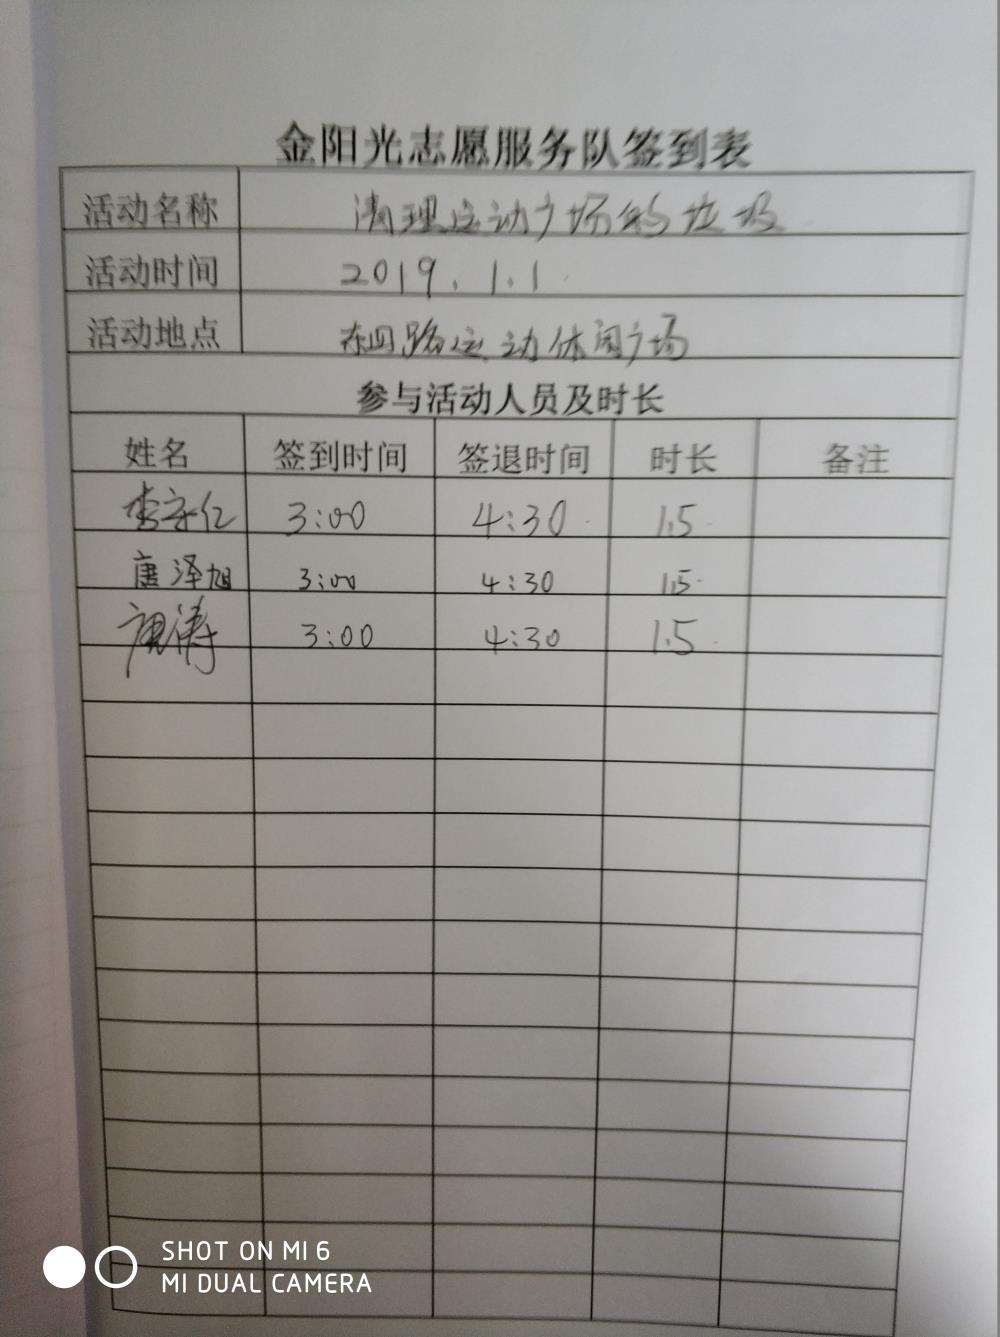 金阳光志愿服务队签到表
活动名称 清理运动广场的垃圾
活动时间 2019.1.1
活动地点 东四路运动休闲广场
参与活动人员及时长
姓名 签到时间 签退时间 时长 备注
李守仁 3:00 4:30 1.5
唐泽旭 3:00 4:30 1.5
3:00 4:30 1.5
SHOT ON MI 6
MI DUAL CAMERA